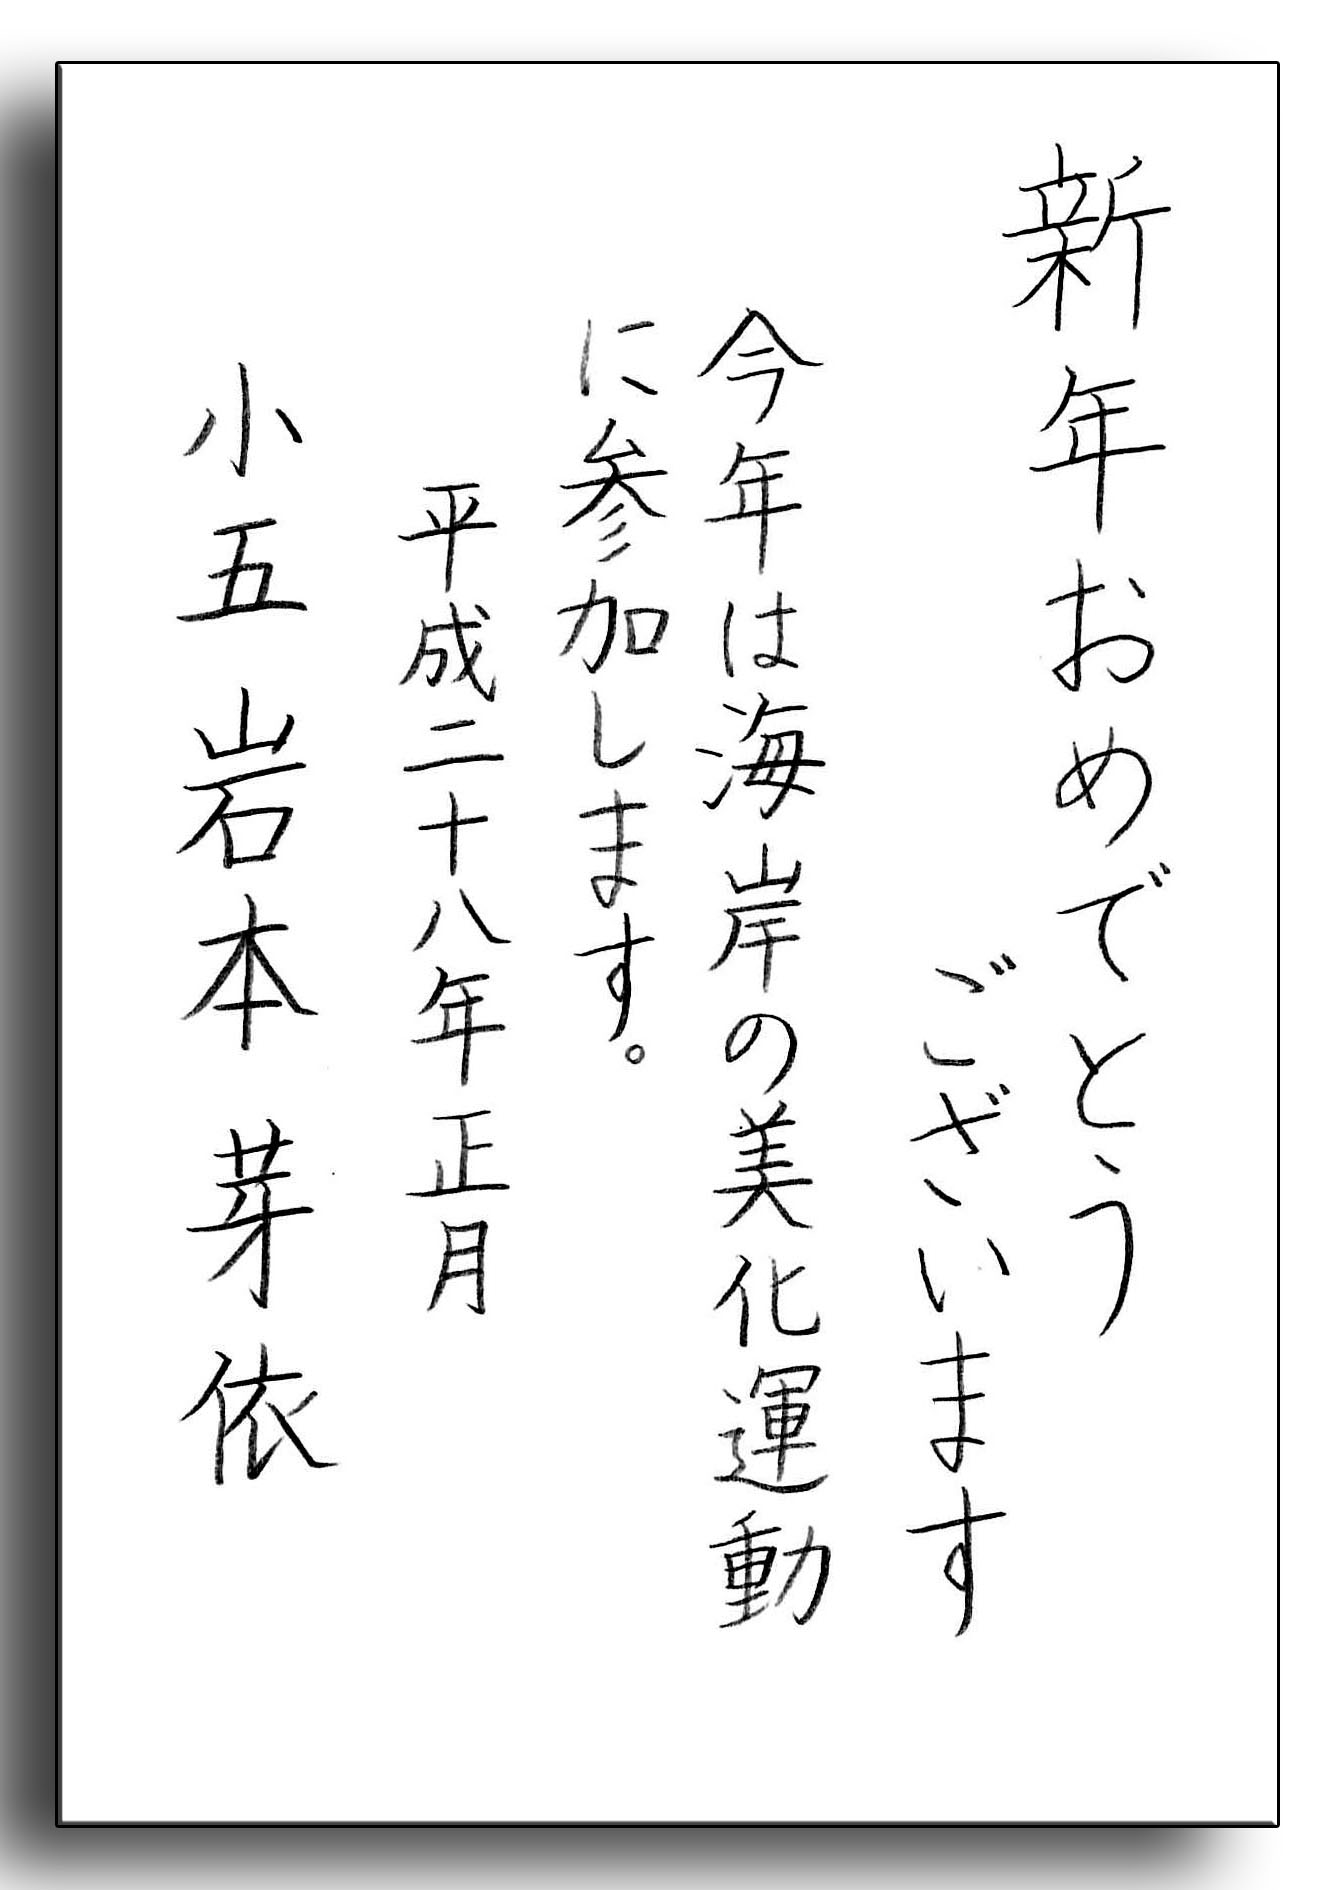 新年おめでとう
ございます
今年は海岸の美化運動
に参加します。
平成二十八年正月
小五 岩本 芽依